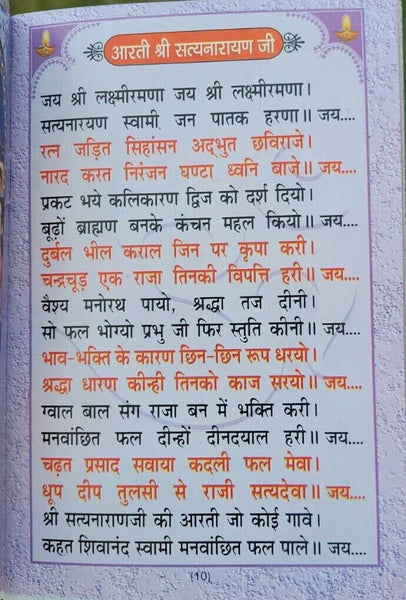 आरती श्री सत्यनारायण जी
जय श्री लक्ष्मीरमणा जय श्री लक्ष्मीरमणा।
सत्यनारयण स्वामी जन पातक हरणा॥ जय....
रत्न जड़ित सिहांसन अद्भुत छविराजे।
नारद करत निरंजन घण्टा ध्वनि बाजे॥ जय....
प्रकट भये कलिकारण द्विज को दर्श दियो।
बूढ़ों ब्राह्मण बनके कंचन महल कियो॥ जय....
दुर्बल भील कराल जिन पर कृपा करी।
चन्द्रचूड़ एक राजा तिनकी विपत्ति हरी॥ जय....
वैश्य मनोरथ पायो, श्रद्धा तज दीनी।
सो फल भोग्यो प्रभु जी फिर स्तुति कीनी॥ जय....
भाव-भक्ति के कारण छिन-छिन रूप धरयो।
श्रद्धा धारण कीन्ही तिनको काज सरयो॥ जय....
ग्वाल बाल संग राजा बन में भक्ति करी।
मनवांछित फल दीन्हों दीनदयाल हरी॥ जय....
चढ़त प्रसाद सवाया कदली फल मेवा।
धूप दीप तुलसी से राजी सत्यदेवा॥ जय....
श्री सत्यनाराणजी की आरती जो कोई गावे।
कहत शिवानंद स्वामी मनवांछित फल पाले॥ जय....
(10)